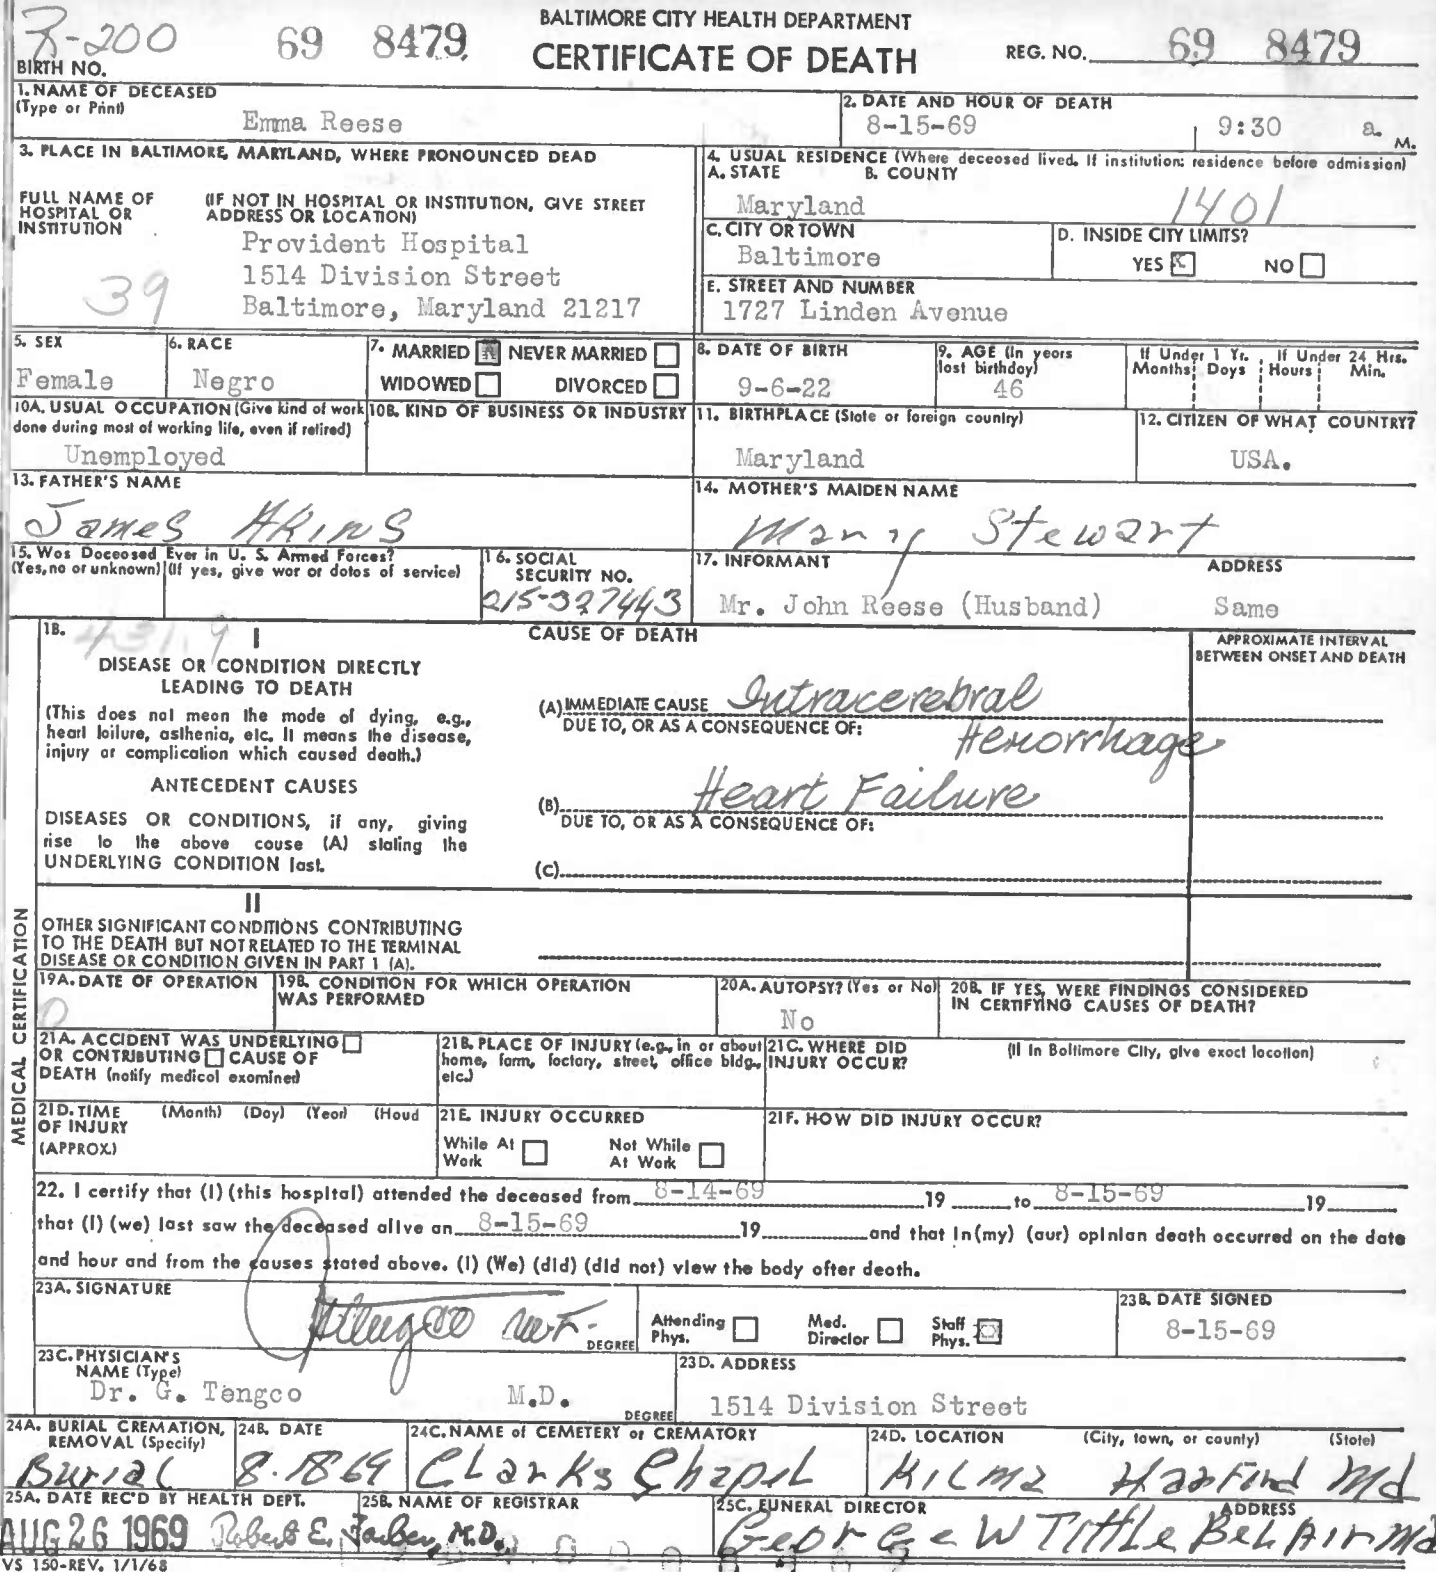 BALTIMORE CITY HEALTH DEPARTMENT
CERTIFICATE OF DEATH
R-200 69 8479
BIRTH NO.
REG. NO. 69 8479
1. NAME OF DECEASED
(Type or Print)
Emma Reese
2. DATE AND HOUR OF DEATH
8-15-69 9:30 a. M.
3. PLACE IN BALTIMORE, MARYLAND, WHERE PRONOUNCED DEAD
FULL NAME OF HOSPITAL OR INSTITUTION
(IF NOT IN HOSPITAL OR INSTITUTION, GIVE STREET ADDRESS OR LOCATION)
Provident Hospital
1514 Division Street
Baltimore, Maryland 21217
39
4. USUAL RESIDENCE (Where deceased lived. If institution: residence before admission)
A. STATE B. COUNTY
Maryland 1401
C. CITY OR TOWN
Baltimore
D. INSIDE CITY LIMITS?
YES X NO
E. STREET AND NUMBER
1727 Linden Avenue
5. SEX
Female
6. RACE
Negro
7. MARRIED X NEVER MARRIED
WIDOWED DIVORCED
8. DATE OF BIRTH
9-6-22
9. AGE (In years last birthday)
46
If Under 1 Yr. If Under 24 Hrs.
Months Days Hours Min.
10A. USUAL OCCUPATION (Give kind of work done during most of working life, even if retired)
Unemployed
10B. KIND OF BUSINESS OR INDUSTRY
11. BIRTHPLACE (State or foreign country)
Maryland
12. CITIZEN OF WHAT COUNTRY?
USA.
13. FATHER'S NAME
James Akins
14. MOTHER'S MAIDEN NAME
Mary Stewart
15. Was Deceased Ever in U. S. Armed Forces?
(Yes, no or unknown) (If yes, give war or dates of service)
16. SOCIAL SECURITY NO.
215-327443
17. INFORMANT ADDRESS
Mr. John Reese (Husband) Same
18. 431.9
I
CAUSE OF DEATH
APPROXIMATE INTERVAL BETWEEN ONSET AND DEATH
DISEASE OR CONDITION DIRECTLY LEADING TO DEATH
(This does not mean the mode of dying, e.g., heart failure, asthenia, etc. It means the disease, injury or complication which caused death.)
(A) IMMEDIATE CAUSE Intracerebral Hemorrhage
DUE TO, OR AS A CONSEQUENCE OF:
ANTECEDENT CAUSES
DISEASES OR CONDITIONS, if any, giving rise to the above cause (A) stating the UNDERLYING CONDITION last.
(B) Heart Failure
DUE TO, OR AS A CONSEQUENCE OF:
(C)
II
OTHER SIGNIFICANT CONDITIONS CONTRIBUTING TO THE DEATH BUT NOT RELATED TO THE TERMINAL DISEASE OR CONDITION GIVEN IN PART 1 (A).
MEDICAL CERTIFICATION
19A. DATE OF OPERATION
0
19B. CONDITION FOR WHICH OPERATION WAS PERFORMED
20A. AUTOPSY? (Yes or No)
No
20B. IF YES, WERE FINDINGS CONSIDERED IN CERTIFYING CAUSES OF DEATH?
21A. ACCIDENT WAS UNDERLYING OR CONTRIBUTING CAUSE OF DEATH (notify medical examiner)
21B. PLACE OF INJURY (e.g., in or about home, farm, factory, street, office bldg., etc.)
21C. WHERE DID INJURY OCCUR?
(If in Baltimore City, give exact location)
21D. TIME OF INJURY (APPROX.)
(Month) (Day) (Year) (Hour)
21E. INJURY OCCURRED
While At Work Not While At Work
21F. HOW DID INJURY OCCUR?
22. I certify that (I) (this hospital) attended the deceased from 8-14-69 19 to 8-15-69 19
that (I) (we) last saw the deceased alive on 8-15-69 19 and that in (my) (our) opinion death occurred on the date
and hour and from the causes stated above. (I) (We) (did) (did not) view the body after death.
23A. SIGNATURE
DEGREE
Attending Phys. Med. Director Staff Phys. X
23B. DATE SIGNED
8-15-69
23C. PHYSICIAN'S NAME (Type)
Dr. G. Tengco M.D.
DEGREE
23D. ADDRESS
1514 Division Street
24A. BURIAL CREMATION, REMOVAL (Specify)
Burial
24B. DATE
8-18 69
24C. NAME of CEMETERY or CREMATORY
Clarks Chapel
24D. LOCATION (City, town, or county) (State)
Kilma Harford Md
25A. DATE REC'D BY HEALTH DEPT.
AUG 26 1969
25B. NAME OF REGISTRAR
Robert E. Farber, M.D.
25C. FUNERAL DIRECTOR ADDRESS
George W Tittle Bel Air Md
VS 150-REV. 1/1/68